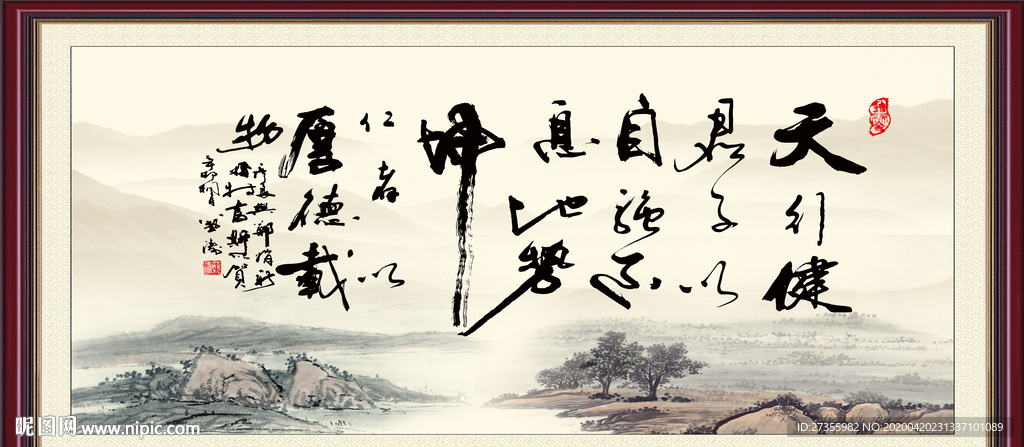 天行健
君子以
自强不
息地势
坤
仁者以
厚德載
物
昵图网 www.nipic.com
ID:27355982 NO:20200420231337101089